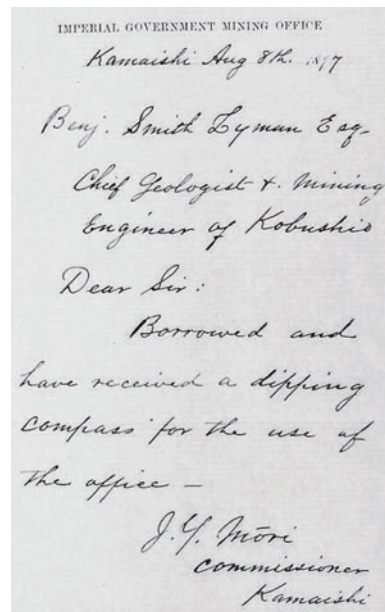 IMPERIAL GOVERNMENT MINING OFFICE
Kamaishi Aug 8th. 1877
Benj. Smith Lyman Esq-
Chief Geologist & Mining
Engineer of Kobushio
Dear Sir:
Borrowed and
have received a dipping
compass for the use of
the office —
J. Y. Mōri
commissioner
Kamaishi